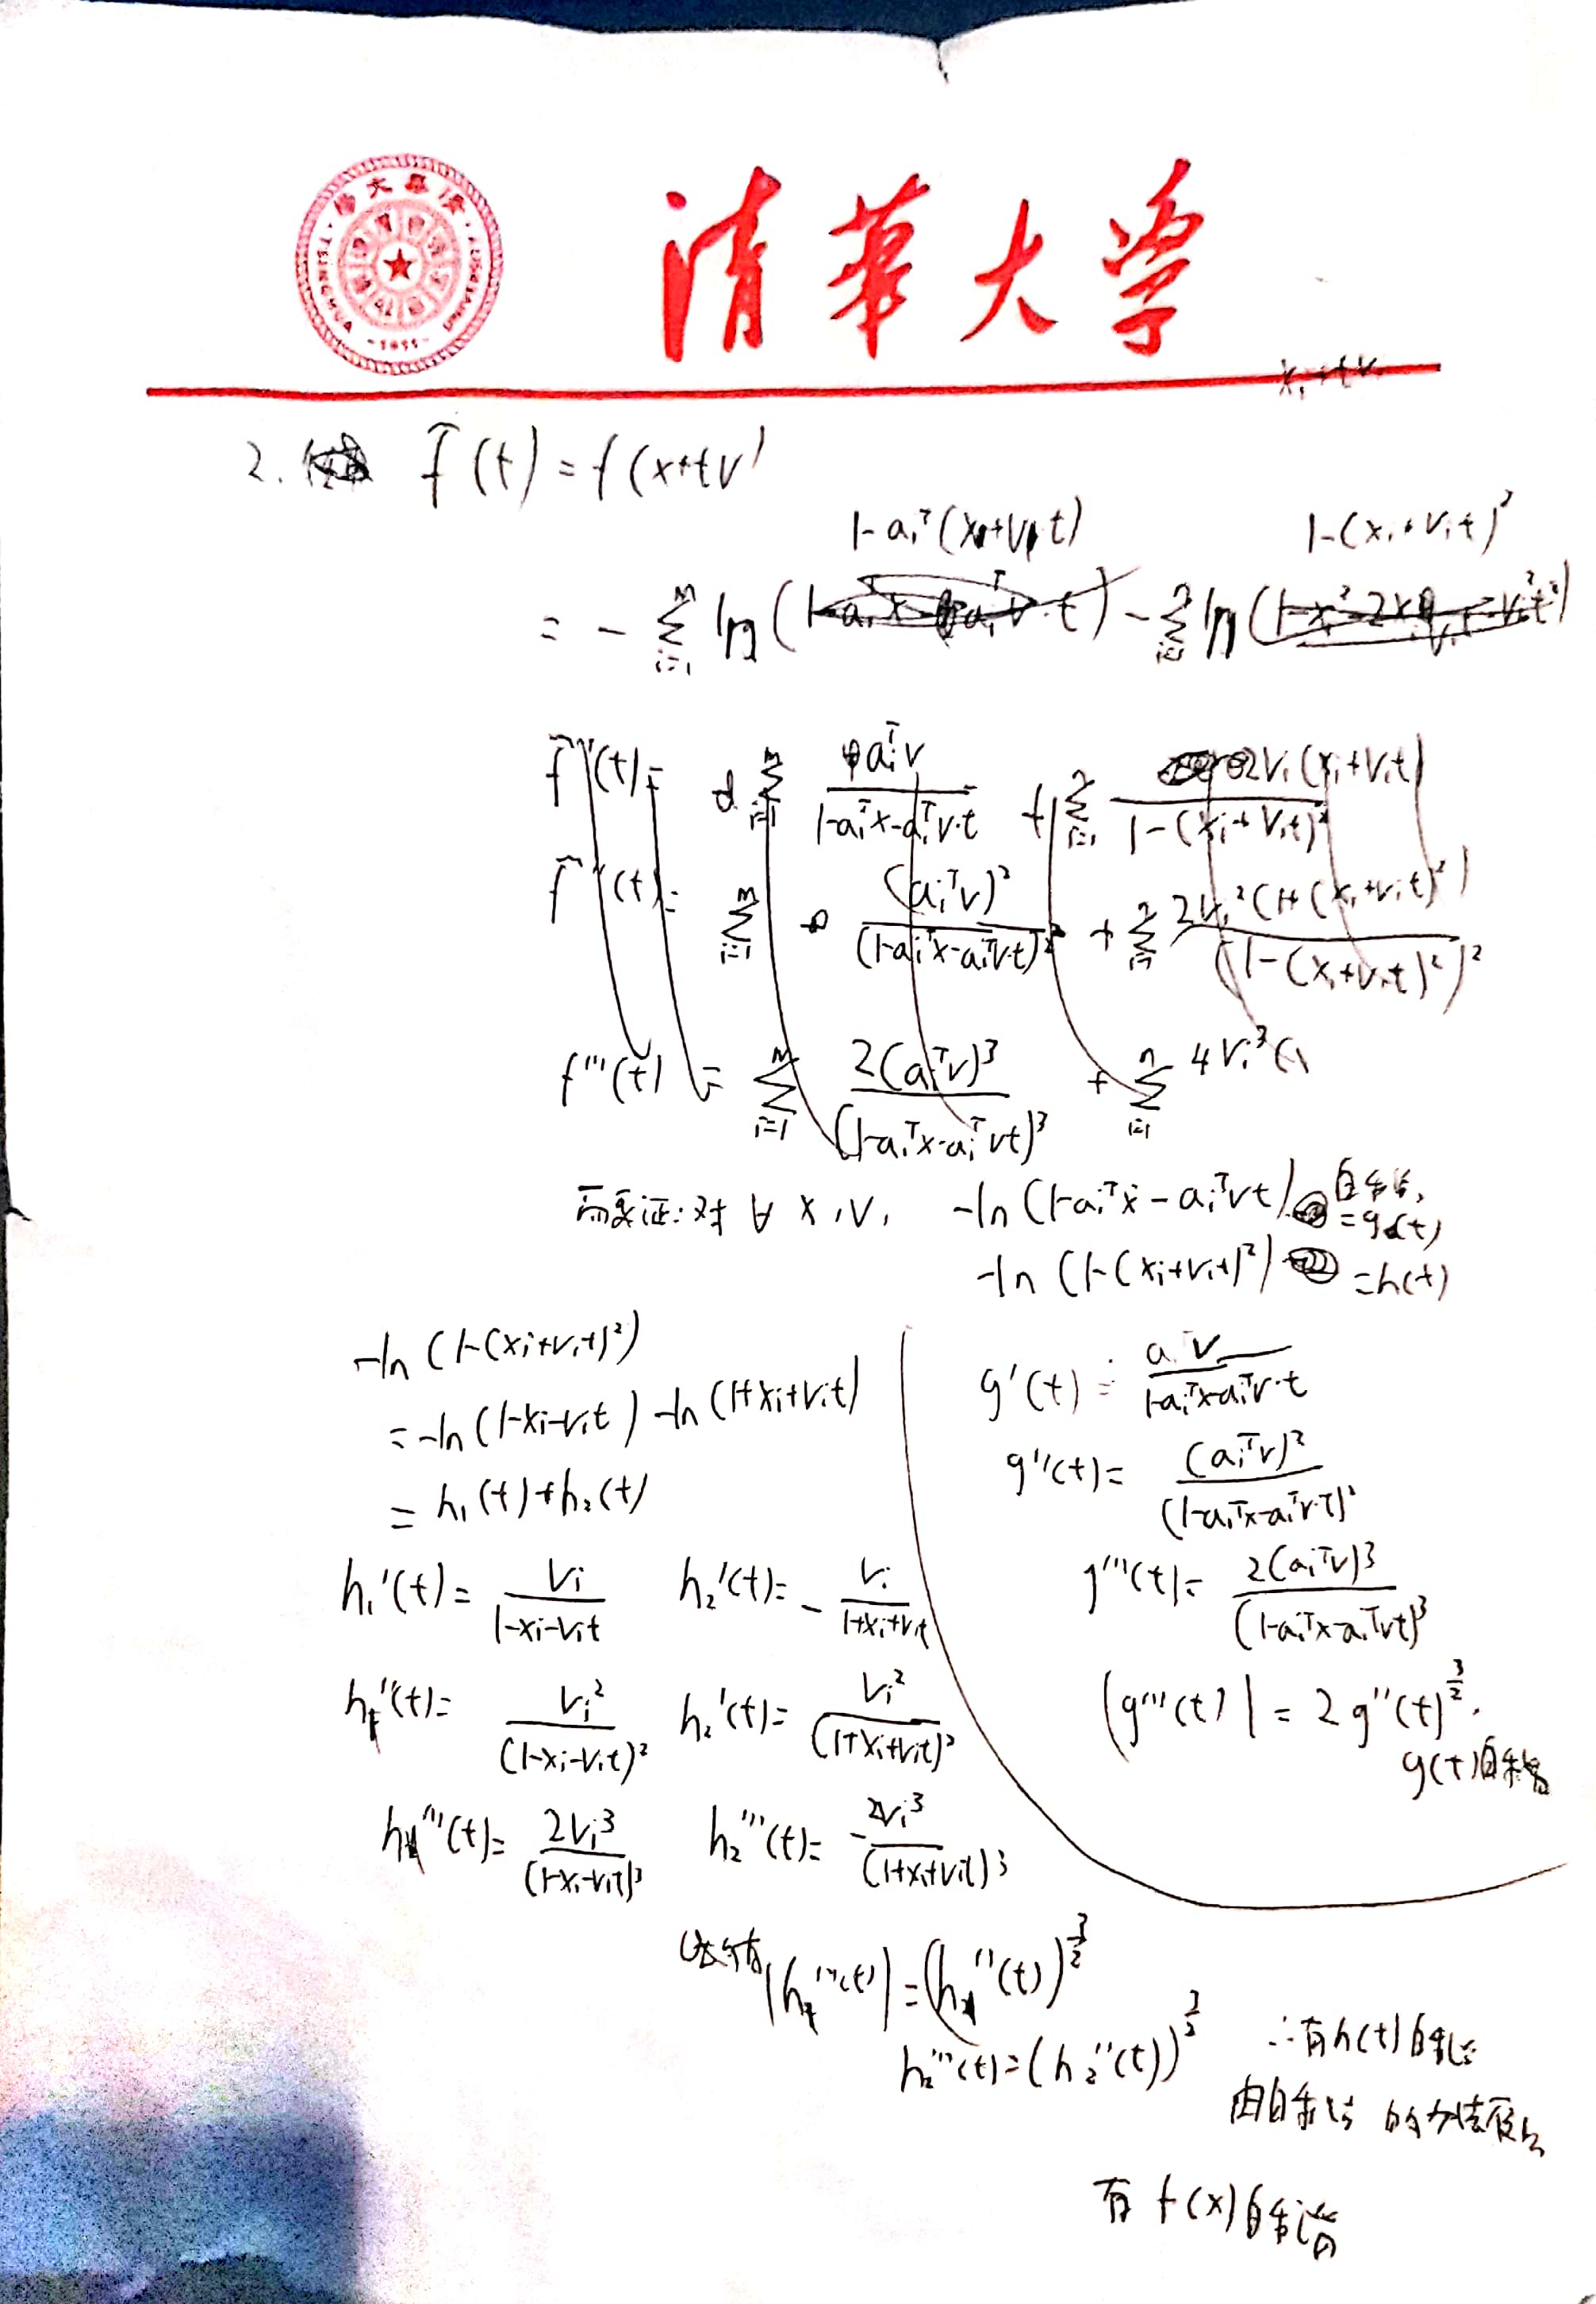 清华大学
2. f̃(t) = f(x+tv)
1-aᵢᵀ(x+vt) 1-(xᵢ+vᵢt)²
= - Σᵢ₌₁ᵐ ln( ) - Σᵢ₌₁ⁿ ln( )
f̃'(t) = Σᵢ₌₁ᵐ aᵢᵀv / (1-aᵢᵀx-aᵢᵀv·t) + Σᵢ₌₁ⁿ 2vᵢ(xᵢ+vᵢt) / (1-(xᵢ+vᵢt)²)
f̃''(t) = Σᵢ₌₁ᵐ (aᵢᵀv)² / (1-aᵢᵀx-aᵢᵀv·t)² + Σᵢ₌₁ⁿ 2vᵢ²(1+(xᵢ+vᵢt)²) / (1-(xᵢ+vᵢt)²)²
f'''(t) = Σᵢ₌₁ᵐ 2(aᵢᵀv)³ / (1-aᵢᵀx-aᵢᵀvt)³ + Σᵢ₌₁ⁿ 4vᵢ³(1
而要证: 对 ∀ x, v, -ln(1-aᵢᵀx-aᵢᵀvt) 自和谐,
=g(t)
-ln(1-(xᵢ+vᵢt)²) =h(t)
-ln(1-(xᵢ+vᵢt)²)
= -ln(1-xᵢ-vᵢt) -ln(1+xᵢ+vᵢt)
= h₁(t)+h₂(t)
h₁'(t) = vᵢ / (1-xᵢ-vᵢt) h₂'(t) = - vᵢ / (1+xᵢ+vᵢt)
h₁''(t) = vᵢ² / (1-xᵢ-vᵢt)² h₂'(t) = vᵢ² / (1+xᵢ+vᵢt)²
h₁'''(t) = 2vᵢ³ / (1-xᵢ-vᵢt)³ h₂'''(t) = - 2vᵢ³ / (1+xᵢ+vᵢt)³
g'(t) = aᵢᵀv / (1-aᵢᵀx-aᵢᵀv·t)
g''(t) = (aᵢᵀv)² / (1-aᵢᵀx-aᵢᵀv·t)²
g'''(t) = 2(aᵢᵀv)³ / (1-aᵢᵀx-aᵢᵀvt)³
|g'''(t)| = 2g''(t)^(3/2).
g(t)自和谐
|h₁'''(t)| = (h₁''(t))^(3/2)
h₂'''(t) = (h₂''(t))^(3/2)
∴有h(t)自和谐
由自和谐的加法
有 f(x)自和谐